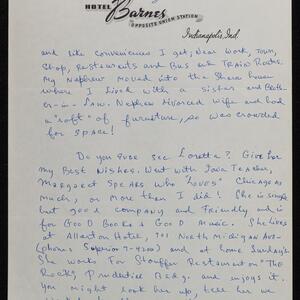 HOTEL Barnes
OPPOSITE UNION STATION
Indianapolis, Ind.
and like conveniences I get; Near work, Town,
Shop, Restaurants and Bus and Train Routes.
My Nephew moved into the share house
where I lived with a sister and Broth-
er-in-Law. Nephew divorced wife and had
a "loft" of furniture, so was crowded
for space!
Do you ever see Loretta? Give her
my Best Wishes. Went with
Margaret Spears who "Loves" Chicago as
much, or more than I did! She is single
but good company and Friendly and is
for Good Books & Good Music. She lives
at Allerton Hotel, 701 North Michigan Ave-
(phone Superior 7-4200) and at home Sundays.
She works For Stouffer Restaurant "The
Rock", Prudential Bldg. and enjoys it.
You might look her up, tell her we